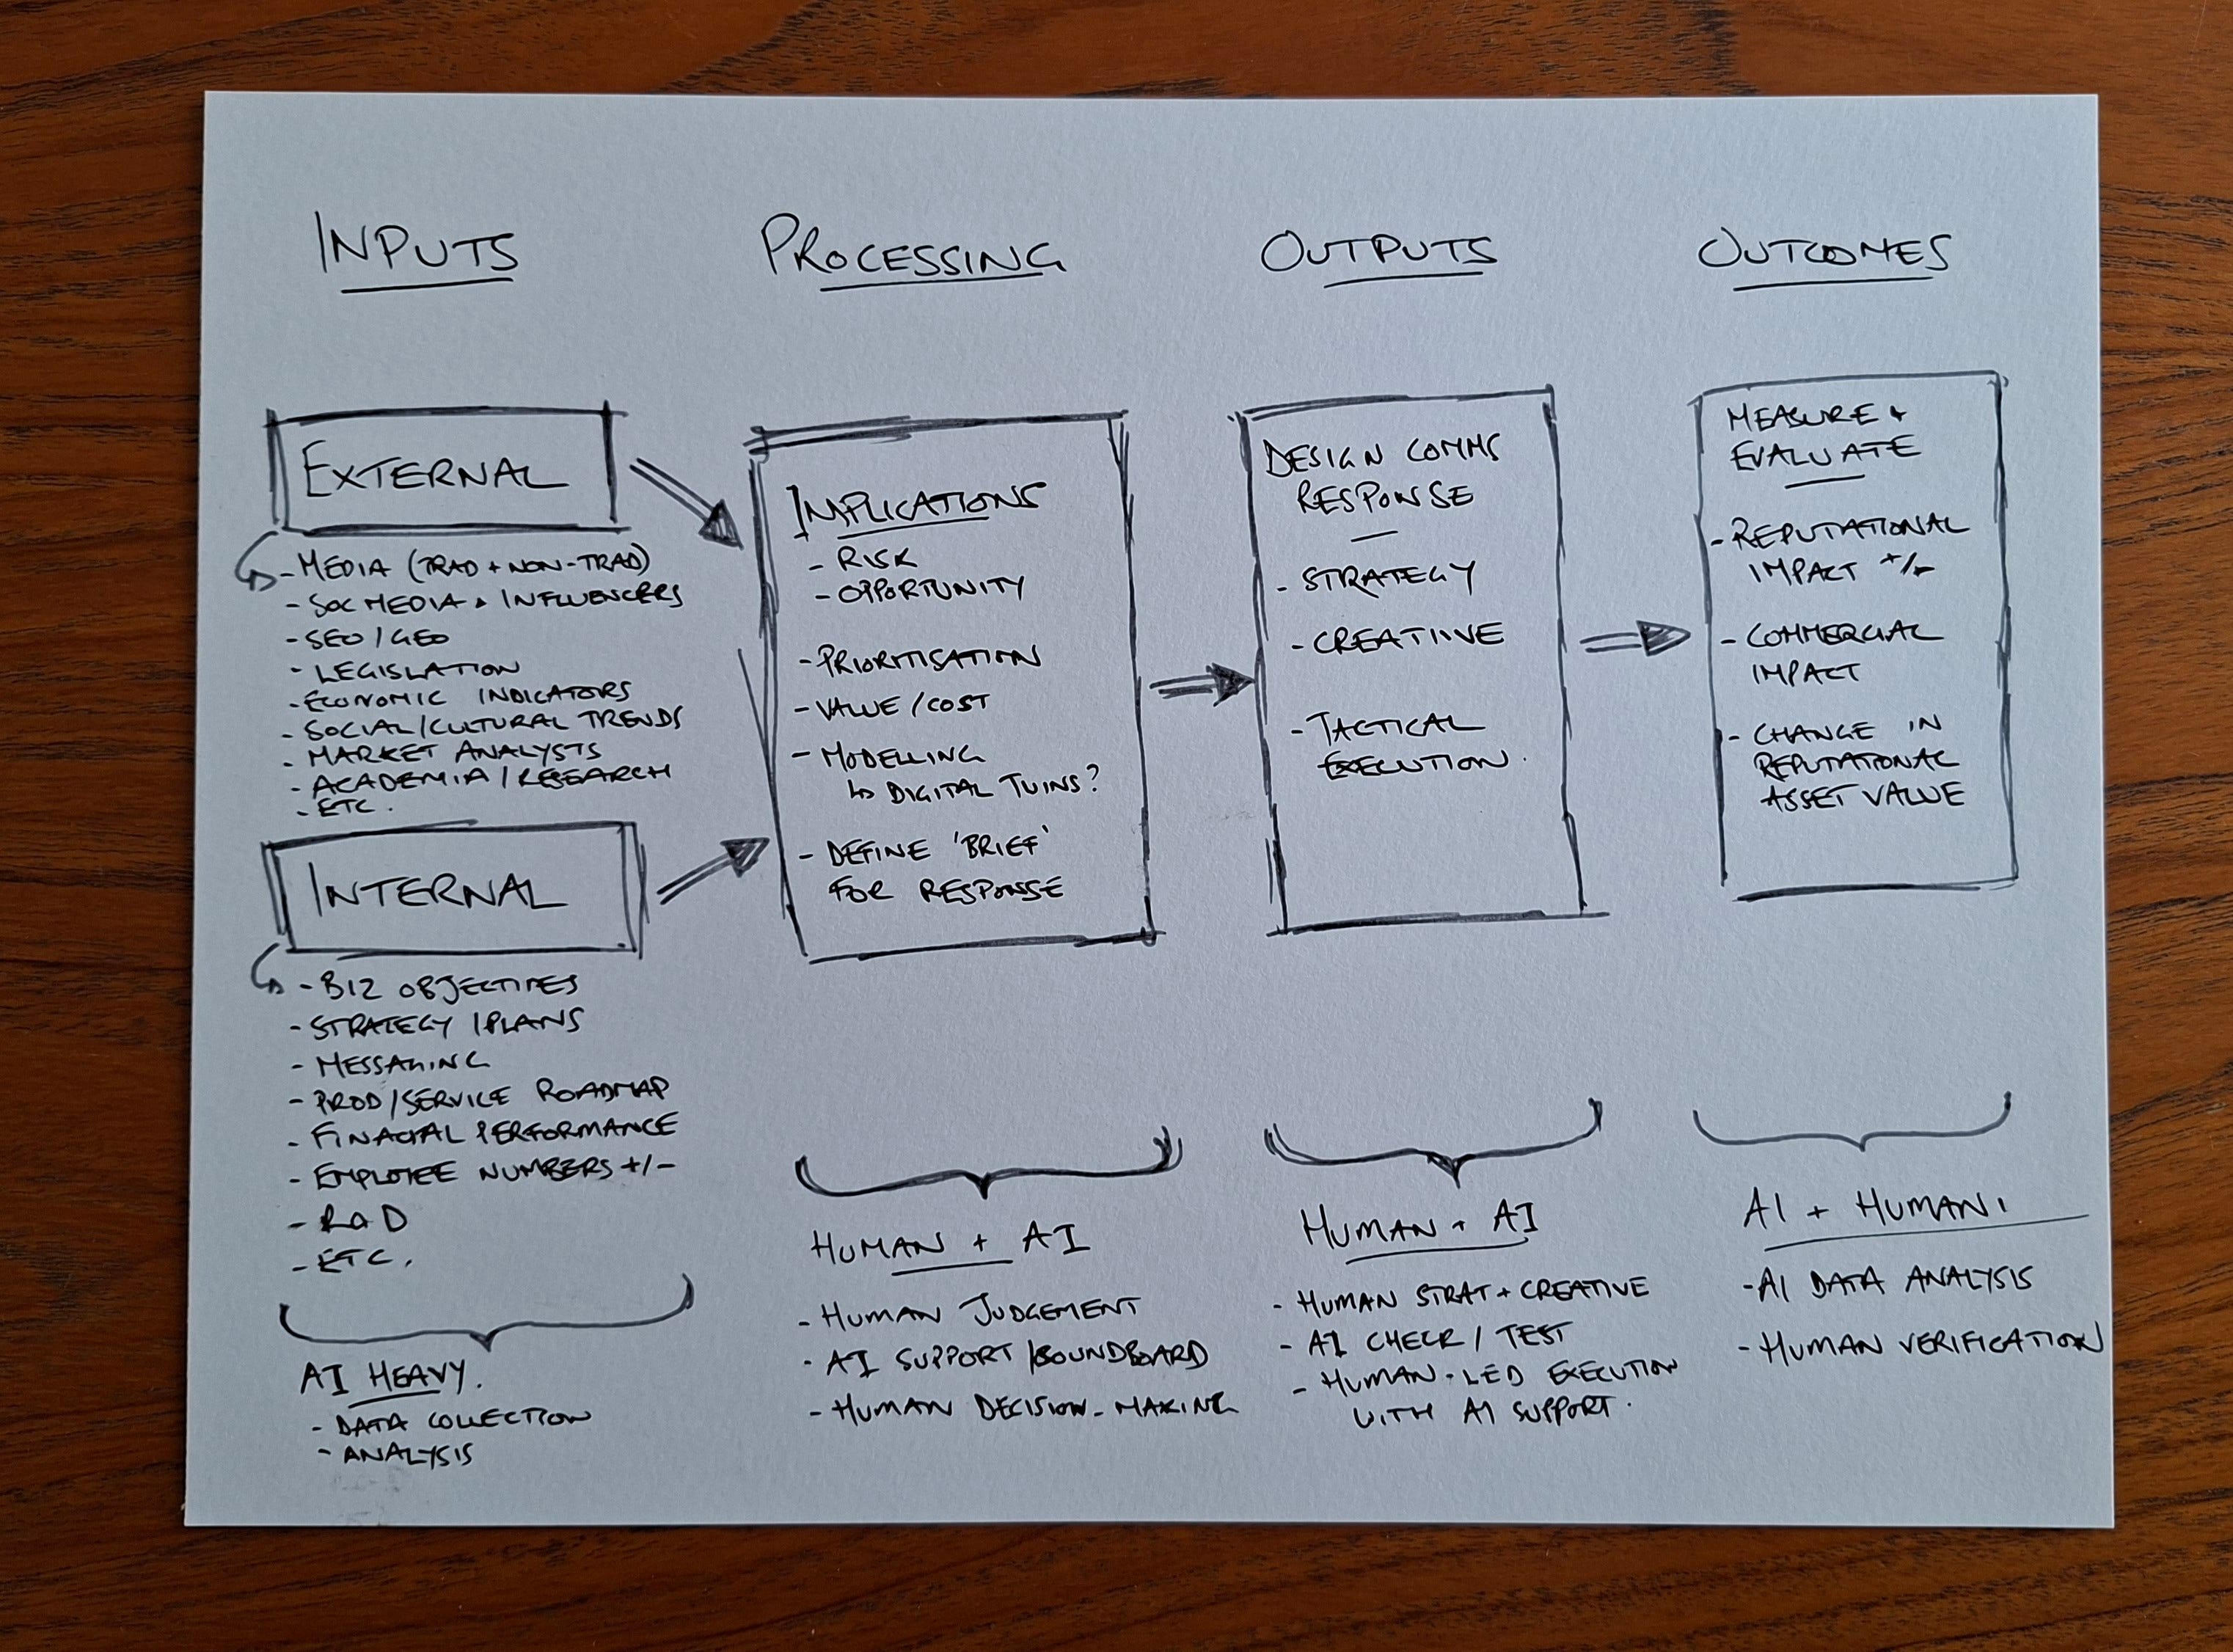 INPUTS
EXTERNAL
- MEDIA (TRAD + NON-TRAD)
- SOC MEDIA + INFLUENCERS
- SEO / GEO
- LEGISLATION
- ECONOMIC INDICATORS
- SOCIAL/CULTURAL TRENDS
- MARKET ANALYSTS
- ACADEMIA / RESEARCH
- ETC.
INTERNAL
- BIZ OBJECTIVES
- STRATEGY / PLANS
- MESSAGING
- PROD/SERVICE ROADMAP
- FINACIAL PERFORMANCE
- EMPLOYEE NUMBERS +/-
- R&D
- ETC.
AI HEAVY.
- DATA COLLECTION
- ANALYSIS
PROCESSING
IMPLICATIONS
- RISK
- OPPORTUNITY
- PRIORITISATION
- VALUE / COST
- MODELLING
↳ DIGITAL TWINS?
- DEFINE 'BRIEF'
FOR RESPONSE
HUMAN + AI
- HUMAN JUDGEMENT
- AI SUPPORT / SOUNDBOARD
- HUMAN DECISION-MAKING
OUTPUTS
DESIGN COMMS
RESPONSE
- STRATEGY
- CREATIIVE
- TACTICAL
EXECUTION.
HUMAN + AI
- HUMAN STRAT + CREATIVE
- AI CHECK / TEST
- HUMAN-LED EXECUTION
WITH AI SUPPORT.
OUTCOMES
MEASURE +
EVALUATE
- REPUTATIONAL
IMPACT +/-
- COMMERCIAL
IMPACT
- CHANGE IN
REPUTATIONAL
ASSET VALUE
AI + HUMAN
- AI DATA ANALYSIS
- HUMAN VERIFICATION